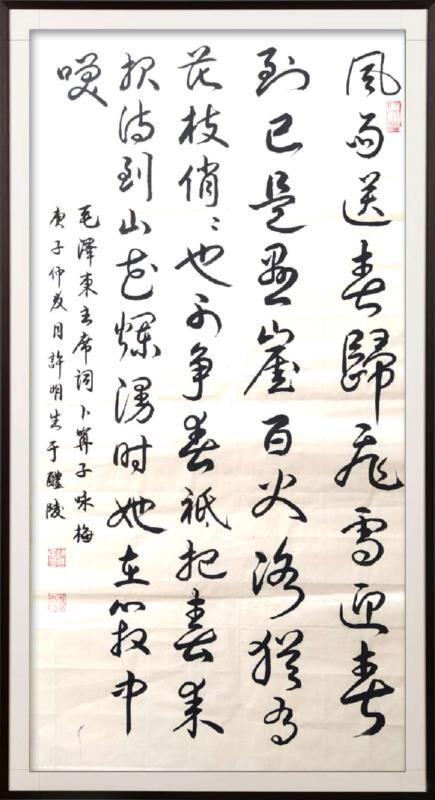 風雨送春歸飛雪迎春
到已是懸崖百丈冰猶有
花枝俏〻也不争春祗把春来
报待到山花爛漫时她在叢中
咲
毛澤東主席词卜算子咏梅
庚子仲夏月許明生于醴陵